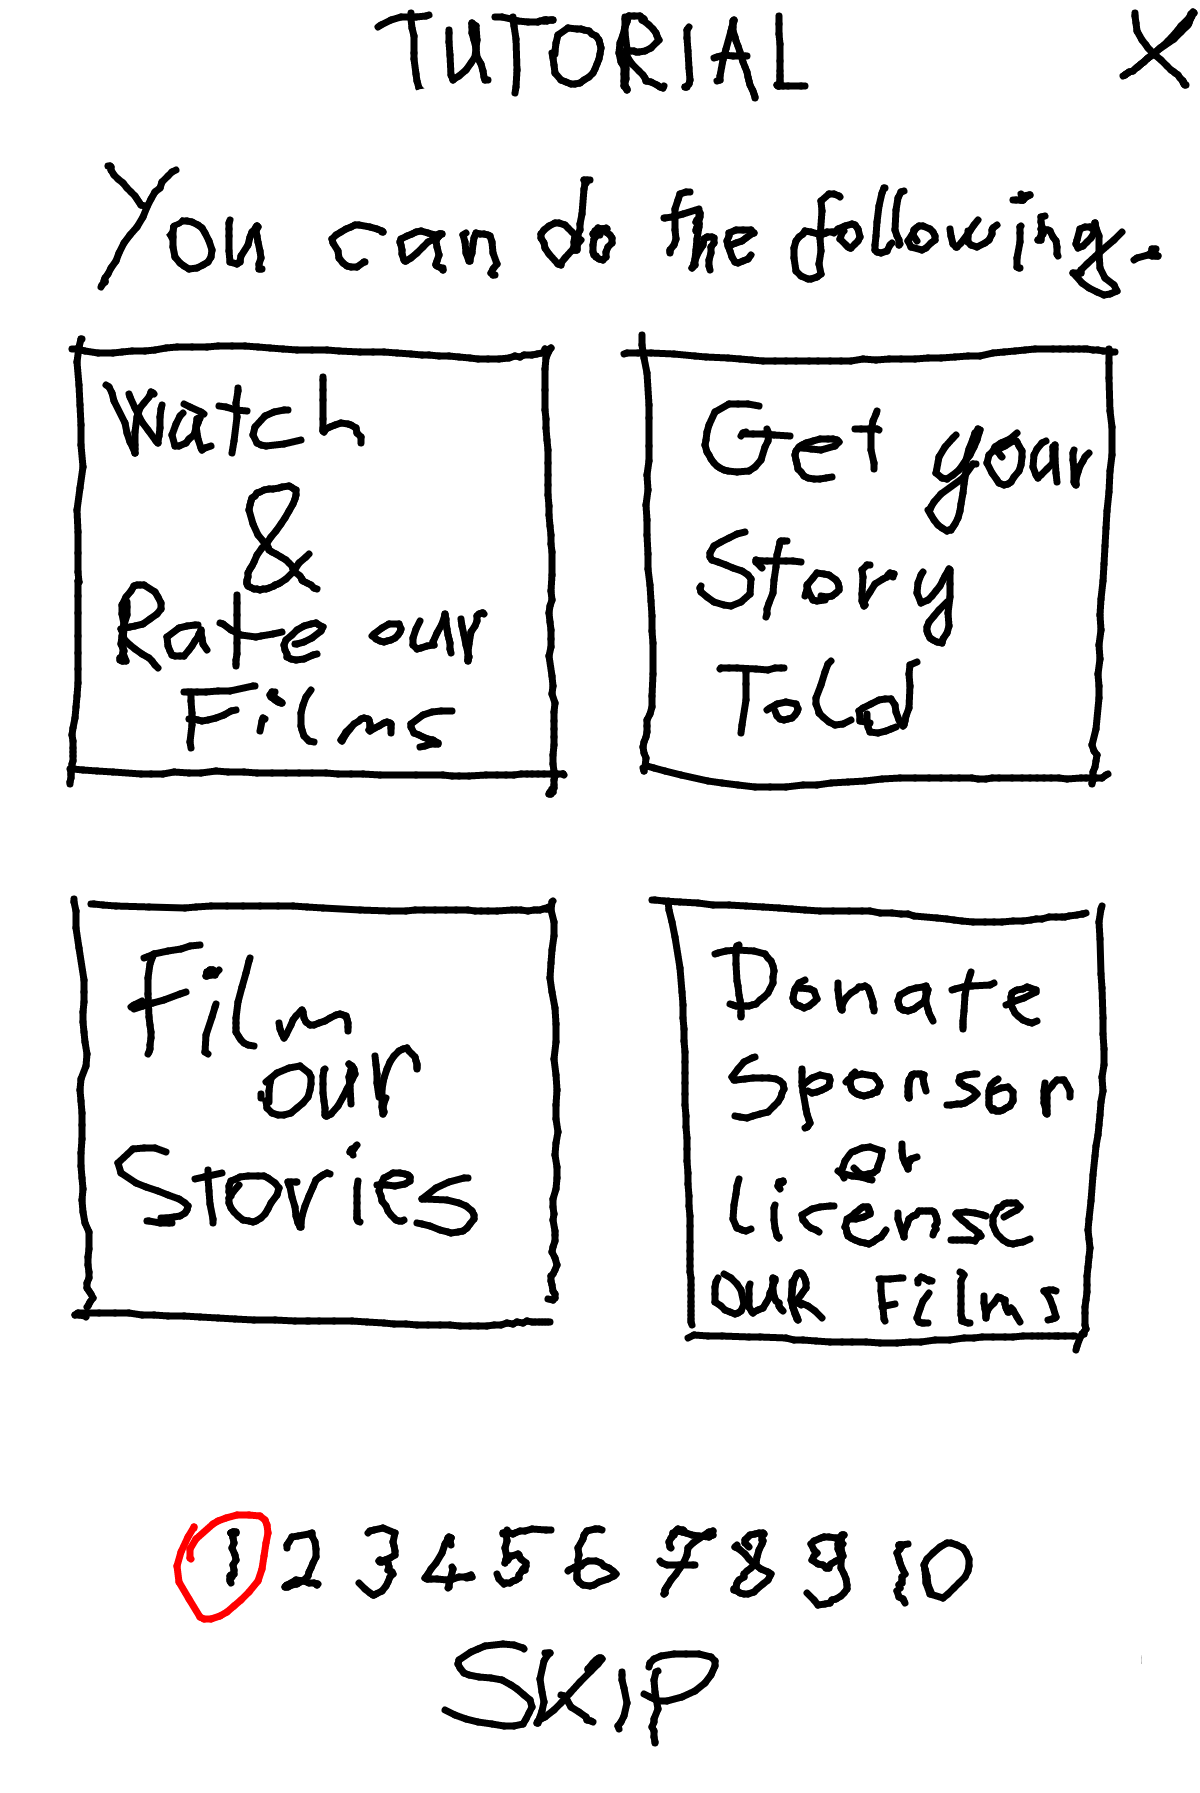 TUTORIAL X
You can do the following.
Watch
&
Rate our
Films
Get your
Story
Told
Film
our
Stories
Donate
Sponsor
or
License
OUR Films
1 2 3 4 5 6 7 8 9 10
SKIP